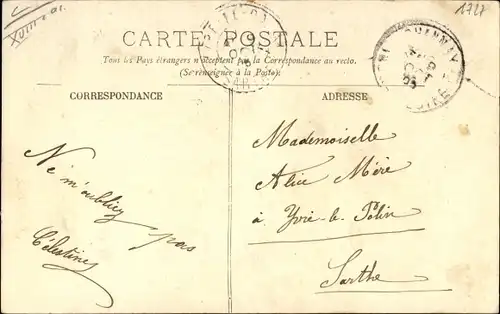 1727
CARTE POSTALE
Tous les Pays étrangers n'acceptent pas la Correspondance au recto.
(Se renseigner à la Poste).
CORRESPONDANCE
ADRESSE
Ne m'oubliez pas
Célestine
Mademoiselle
Alice Mère
à Yvré-le-Pôlin
Sarthe